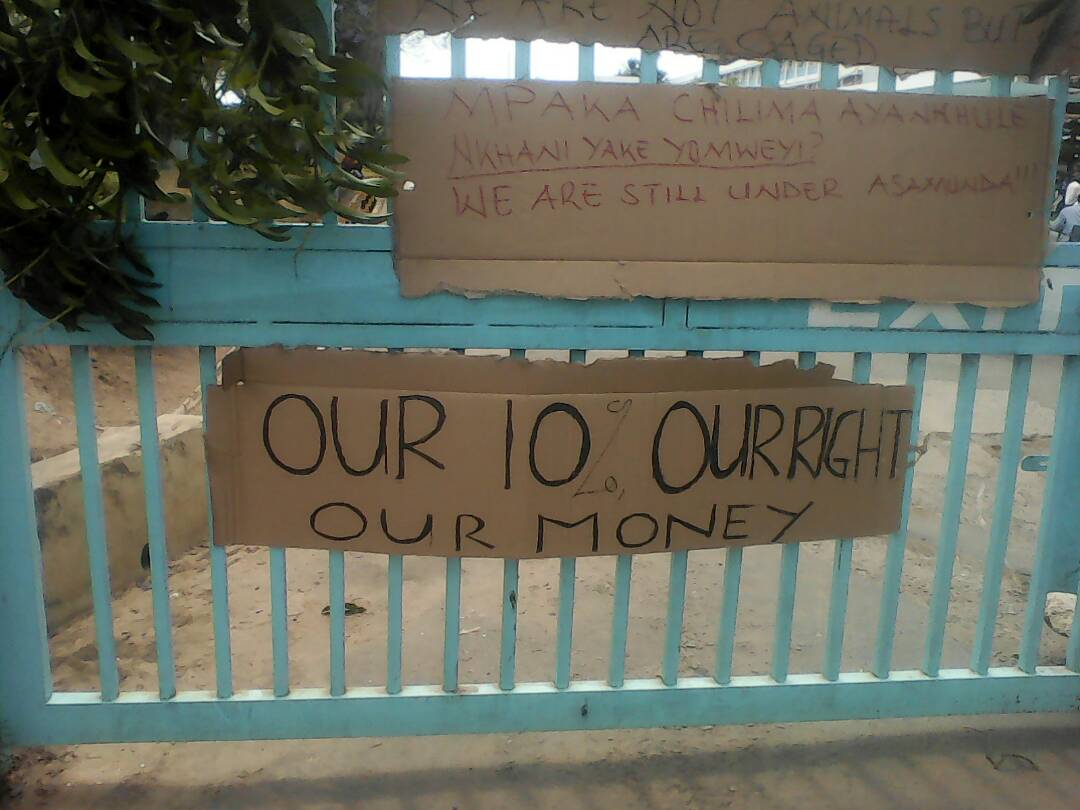 WE ARE NOT ANIMALS BUT
ARE CAGED
MPAKA CHILIMA AYANKHULE
NKHANI YAKE YOMWEYI?
WE ARE STILL UNDER ASAMUNDA'''
EXIT
OUR 10% OUR RIGHT
OUR MONEY